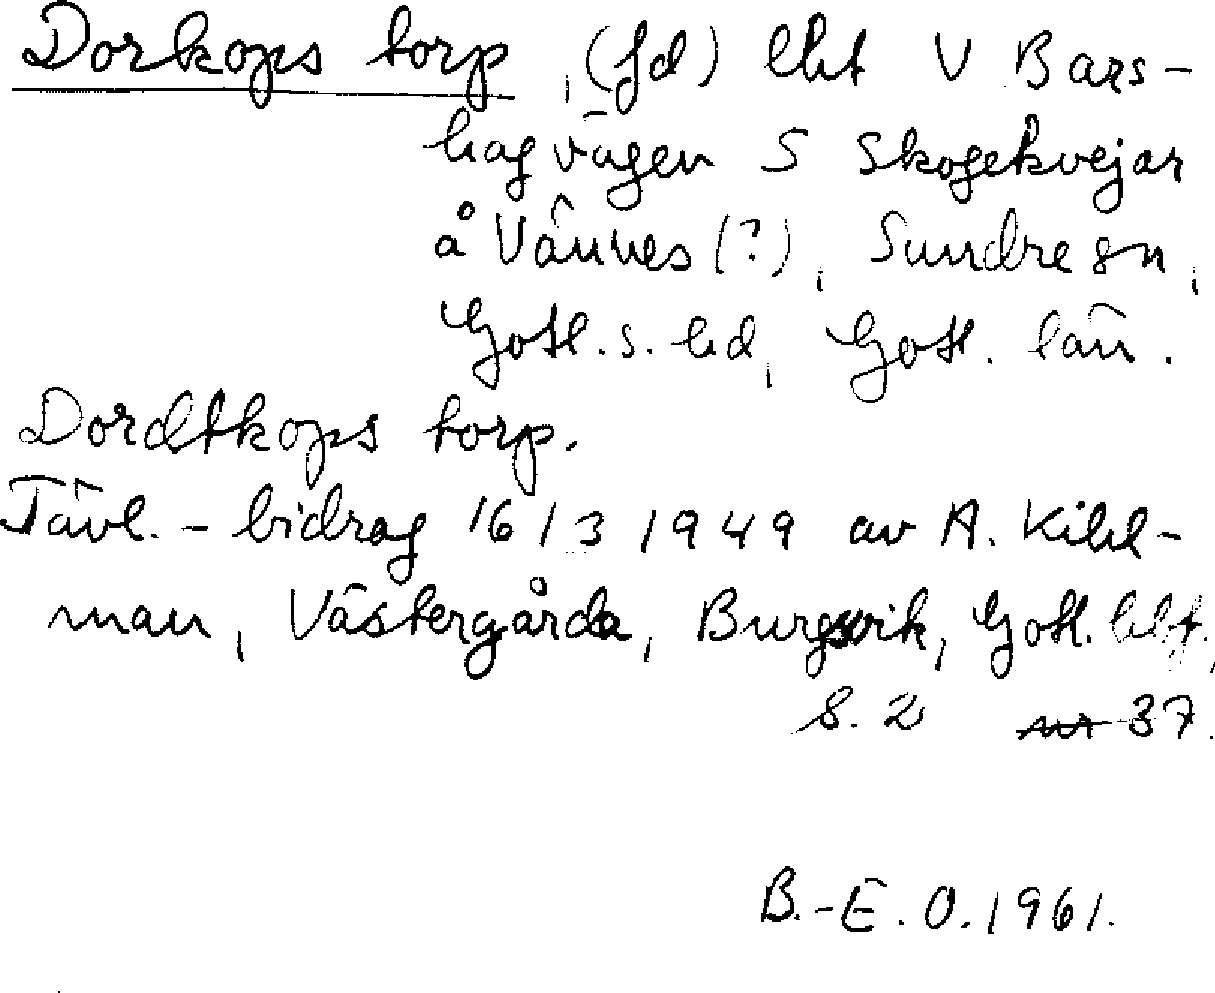 Dorkops torp, (fd) lht V Bars-
hagvägen S Skogekvejar
å Vännes (?), Sundre sn,
Gotl. s. hd, Gotl. län.
Dordtkops torp.
Tävl.-bidrag 16/3 1949 av A. Kihl-
man, Västergårda, Burgsvik, Gotl.
S. 2 37.
B.-E. O. 1961.